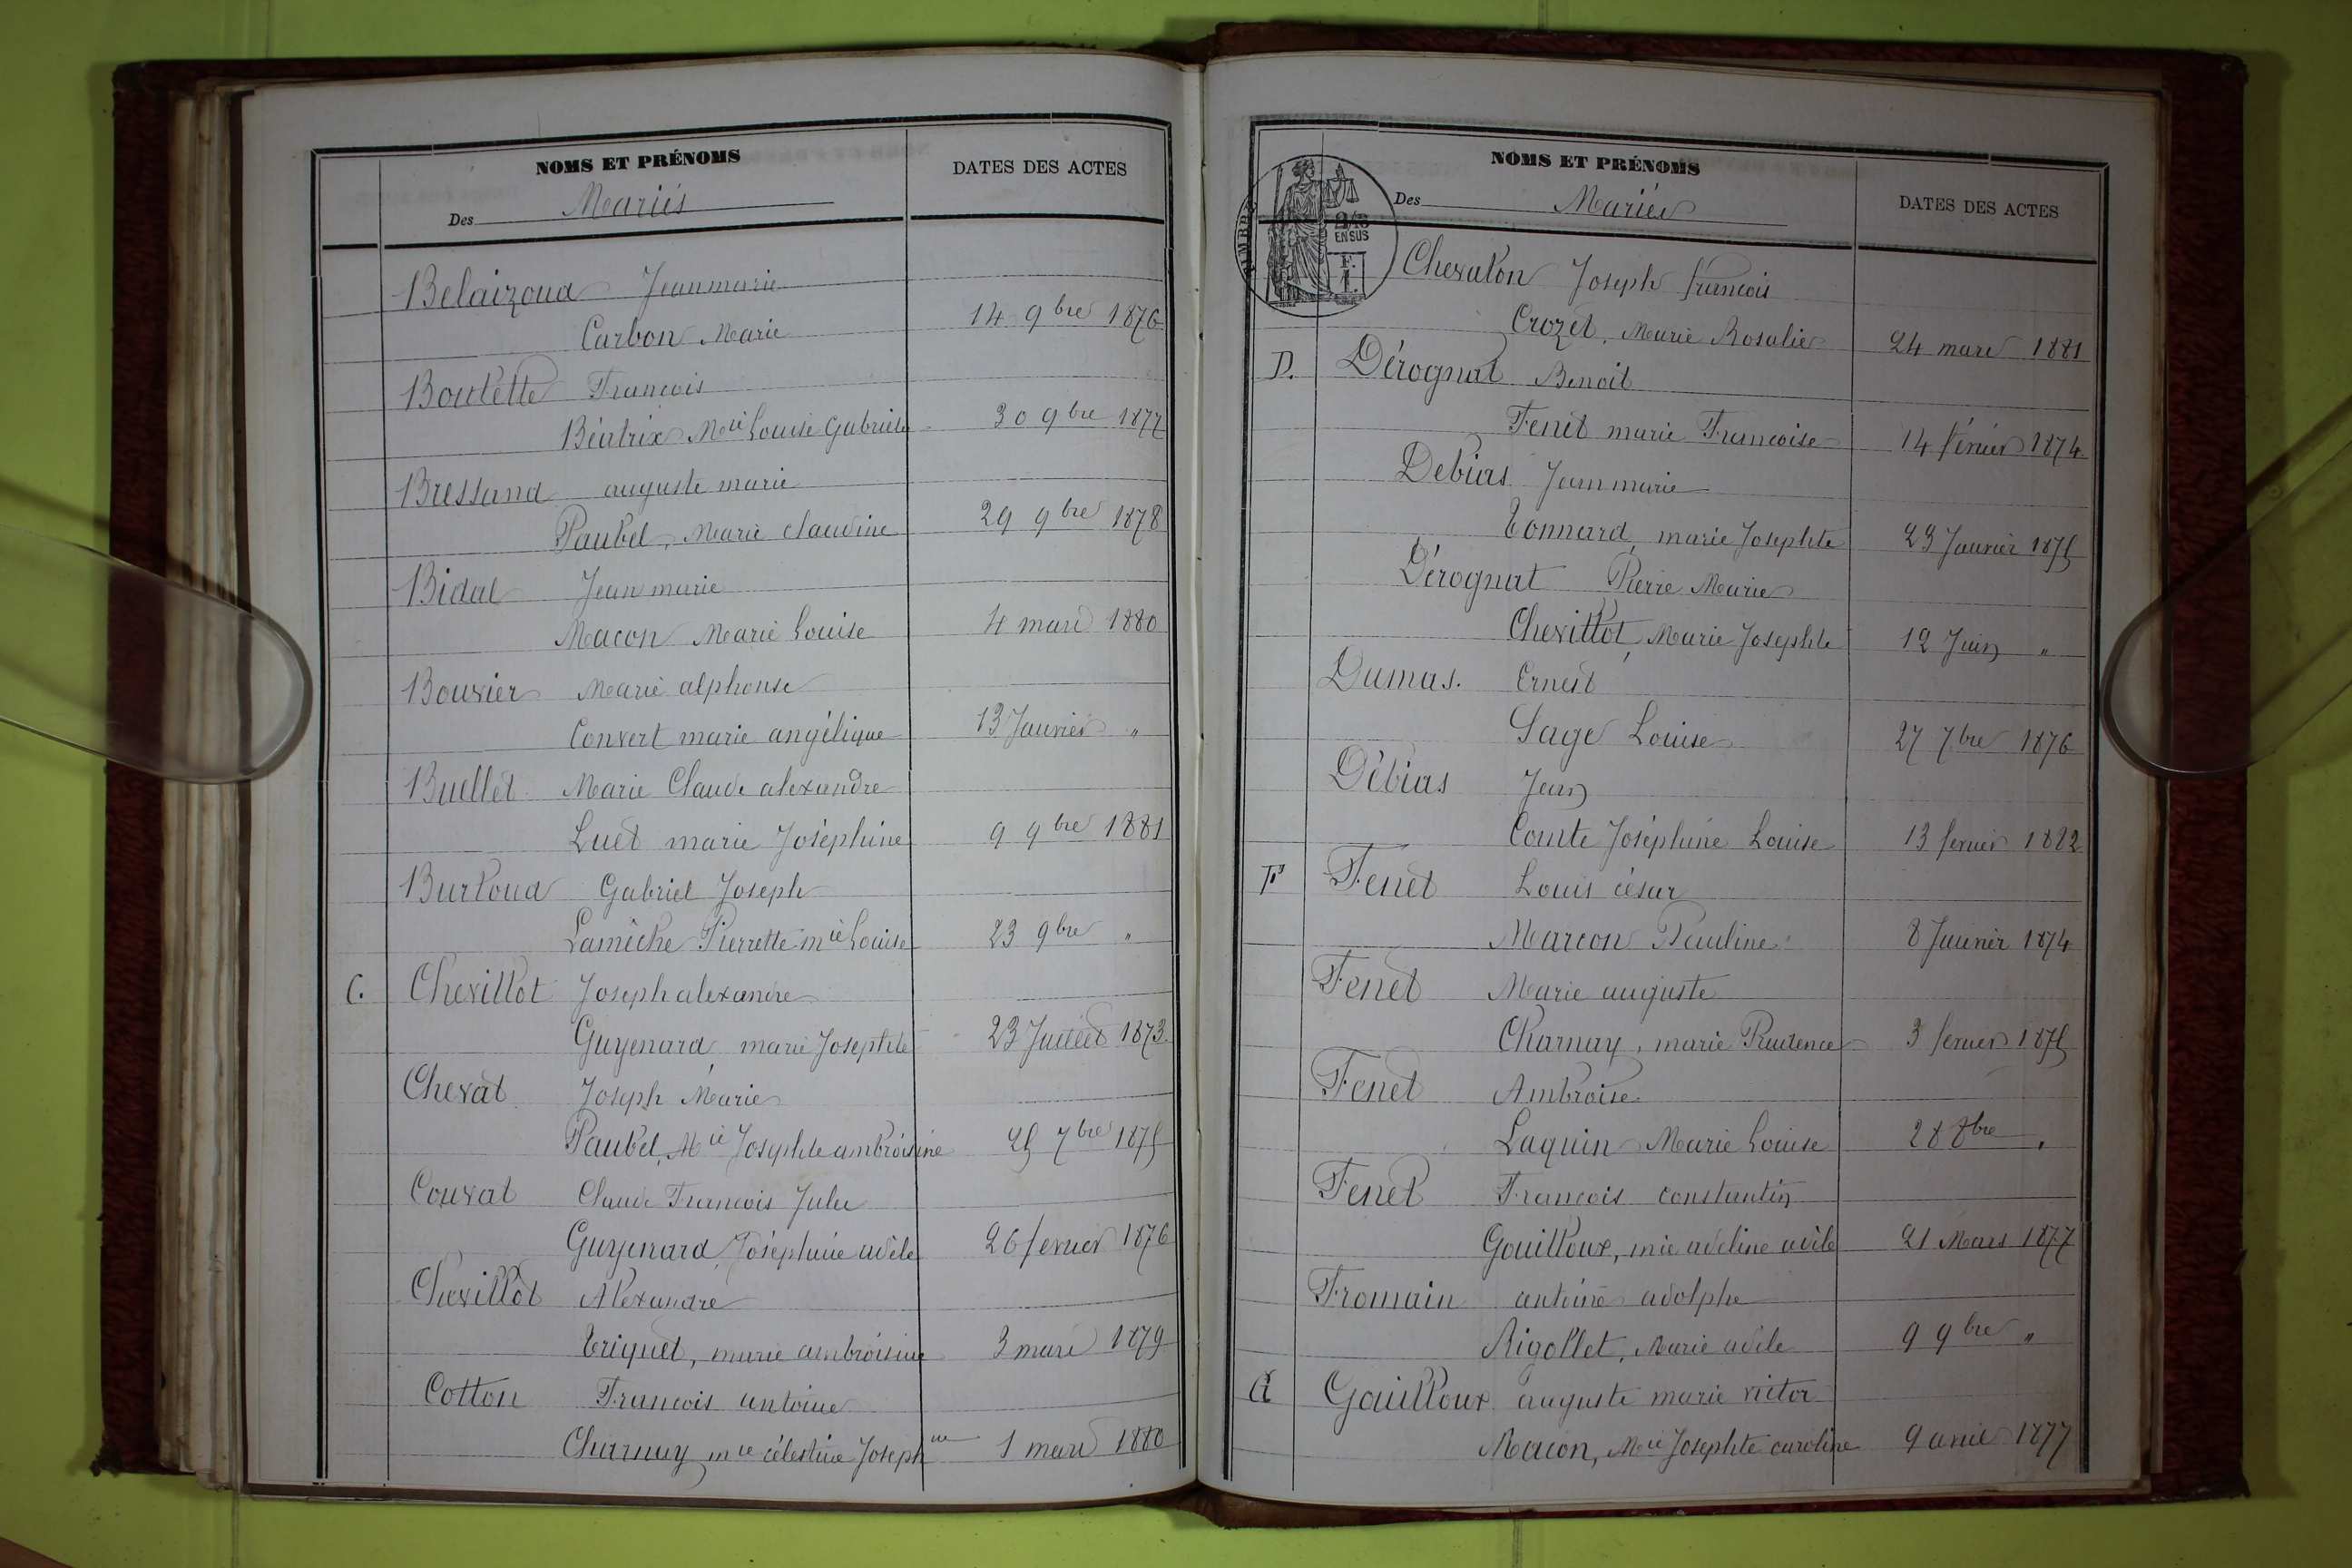 NOMS ET PRÉNOMS
DATES DES ACTES
Des Mariés
Belaizoud Jean marie
Carbon Marie 14 9bre 1876
Boulette François
Béatrix Mie Louise Gabrielle 30 9bre 1877
Bressand auguste marie
Paubel, Marie claudine 29 9bre 1878
Bidal Jean marie
Macon Marie Louise 4 mars 1880
Bouvier Marie alphonse
Convert marie angélique 13 Janvier "
Buellet Marie Claude alexandre
Luet marie Joséphine 9 9bre 1881
Burloud Gabriel Joseph
Lamiche Pierrette mie Louise 23 9bre "
C. Chevillot Joseph alexandre
Guyenard marie Josephte 23 Juillet 1873
Chevat Joseph Marie
Paubel, Mie Josephte ambroisine 25 7bre 1875
Couvat Claude François Jules
Guyenard, Joséphine adèle 26 fevrier 1876
Chevillot Alexandre
Triquet, marie ambroisine 3 mars 1879
Cotton François antoine
Charnay mie célestine Josephine 1 mars 1880
NOMS ET PRÉNOMS
DATES DES ACTES
Des Mariés
TIMBRE
2/10
EN SUS
F.
1.
Chevalon Joseph françois
Crozet, Marie Rosalie 24 mars 1881
D. Dérognat Benoit
Fenet marie Françoise 14 février 1874
Debias Jean marie
Tonnard, marie Josephte 23 Janvier 1875
Dérognat Pierre Marie
Chevillot, Marie Josephte 12 Juin "
Dumas. Ernest
Sage Louise 27 7bre 1876
Débias Jean
Comte Joséphine Louise 13 fevrier 1882
F Fenet Louis césar
Marcon Pauline 8 Janvier 1874
Fenet Marie auguste
Charnay, marie Prudence 3 fevrier 1875
Fenet Ambroise
Laquin Marie Louise 28 8bre "
Fenet François constantin
Gouilloux, mie adeline adèle 21 Mars 1877
Fromain antoine adolphe
Rigollet, Marie adèle 9 9bre "
G Gouilloux auguste marie victor
Macon, Mie Josephte caroline 9 avril 1877